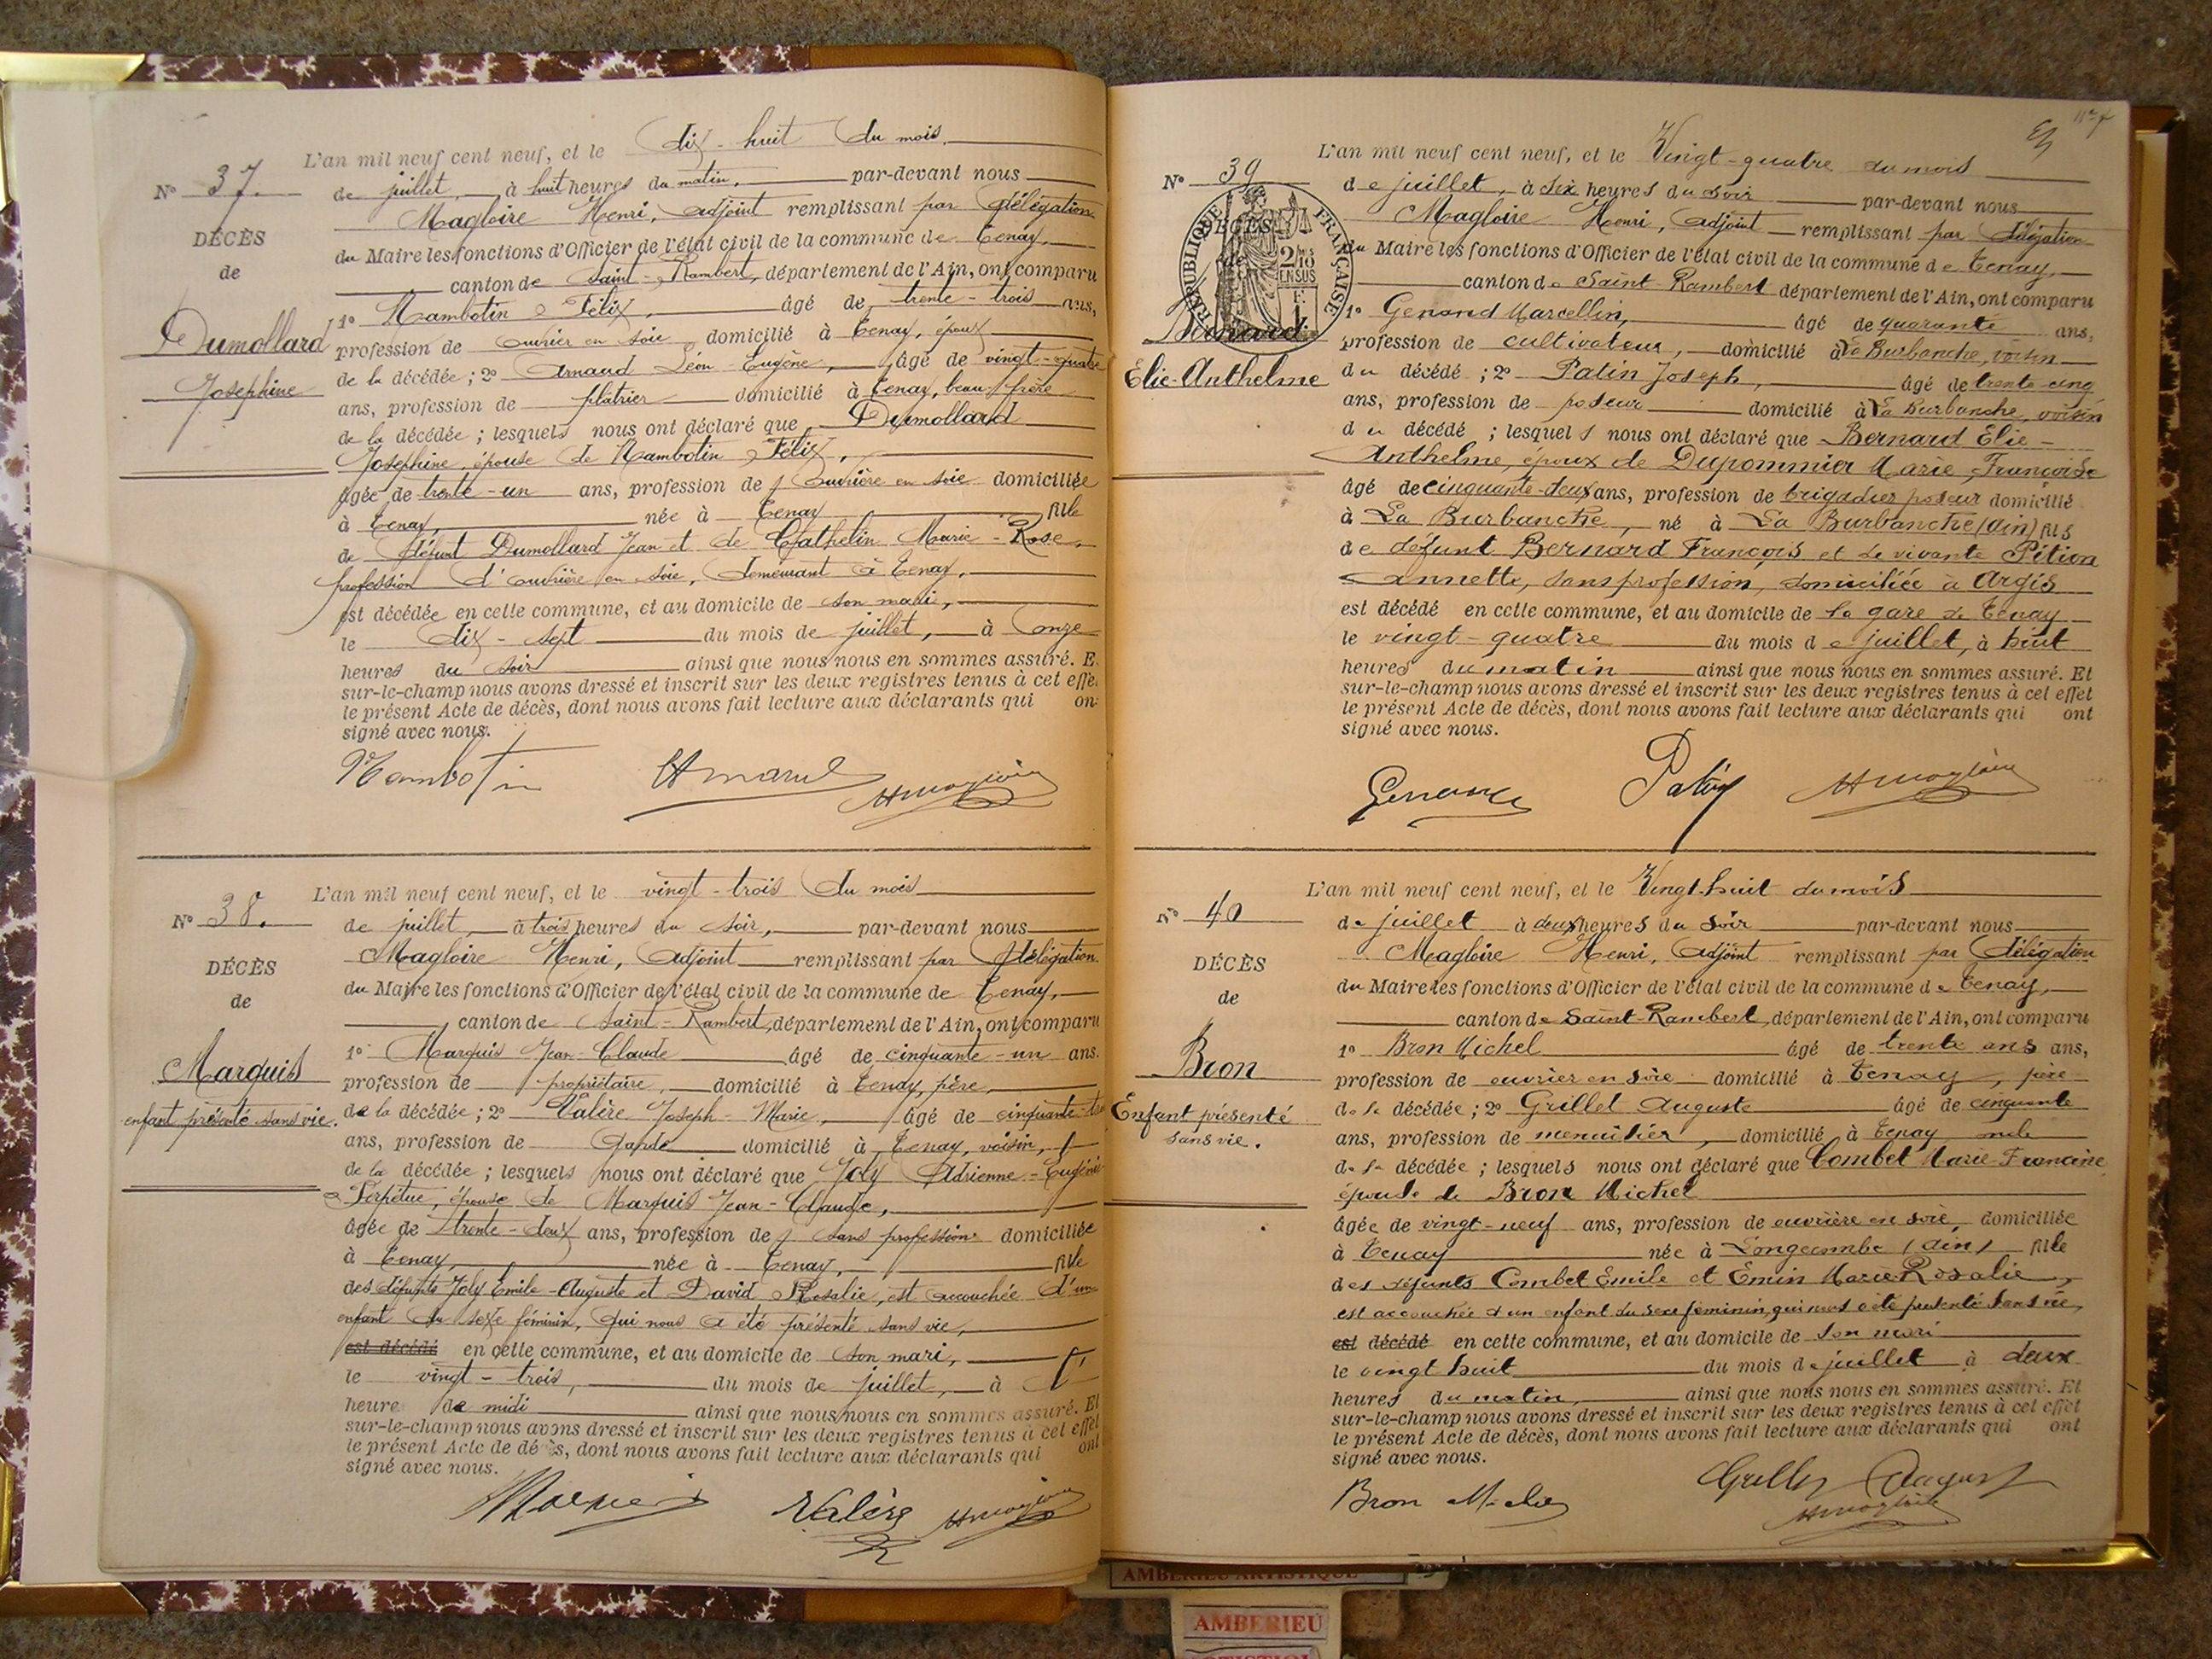 L'an mil neuf cent neuf, et le dix-huit du mois
N° 37.
de juillet, à huit heures du matin, par-devant nous
Magloire Henri, adjoint remplissant par délégation
DÉCÈS
du Maire les fonctions d'Officier de l'état civil de la commune de Tenay,
de
canton de Saint-Rambert, département de l'Ain, ont comparu
1° Rambotin Félix, âgé de trente-trois ans,
Dumollard
profession de ouvrier en soie domicilié à Tenay, époux
de la décédée ; 2° Arnaud Léon-Eugène, âgé de vingt-quatre
Josephine
ans, profession de plâtrier domicilié à Tenay, beau-frère
de la décédée ; lesquels nous ont déclaré que Dumollard
Josephine, épouse de Rambotin Félix,
âgée de trente-un ans, profession de ouvrière en soie domiciliée
à Tenay, née à Tenay fille
de défunt Dumollard Jean et de Cathelin Marie-Rose,
profession d'ouvrière en soie, demeurant à Tenay,
est décédée en cette commune, et au domicile de son mari,
le dix-sept du mois de juillet, à onze
heures du soir ainsi que nous nous en sommes assuré. E
sur-le-champ nous avons dressé et inscrit sur les deux registres tenus à cet effe
le présent Acte de décès, dont nous avons fait lecture aux déclarants qui on
signé avec nous.
Rambotin HMagloire
L'an mil neuf cent neuf, et le vingt-trois du mois
N° 38.
de juillet, à trois heures du soir, par-devant nous
Magloire Henri, adjoint remplissant par délégation
DÉCÈS
du Maire les fonctions d'Officier de l'état civil de la commune de Tenay,
de
canton de Saint-Rambert, département de l'Ain, ont comparu
1° Marquis Jean-Claude âgé de cinquante-un ans.
Marquis
profession de propriétaire, domicilié à Tenay, père
enfant présenté sans vie.
de la décédée ; 2° Valère Joseph-Marie, âgé de cinquante
ans, profession de garde domicilié à Tenay, voisin,
de la décédée ; lesquels nous ont déclaré que Joly Adrienne-Eugénie
Perpétue, épouse de Marquis Jean-Claude,
âgée de trente-deux ans, profession de sans profession domiciliée
à Tenay, née à Tenay, fille
des défunts Joly Émile-Auguste et David Rosalie, est accouchée d'un
enfant du sexe féminin, qui nous a été présenté sans vie,
est décédé en cette commune, et au domicile de son mari,
le vingt-trois, du mois de juillet, à
heure de midi ainsi que nous nous en sommes assuré. Et
sur-le-champ nous avons dressé et inscrit sur les deux registres tenus à cet effet
le présent Acte de décès, dont nous avons fait lecture aux déclarants qui ont
signé avec nous.
Valère HMagloire
L'an mil neuf cent neuf, et le Vingt-quatre du mois
N° 39
de juillet, à six heures du soir par-devant nous
Magloire Henri, adjoint remplissant par délégation
RÉPUBLIQUE FRANÇAISE
DÉCÈS
2/10 EN SUS
de
du Maire les fonctions d'Officier de l'état civil de la commune de Tenay,
canton de Saint-Rambert département de l'Ain, ont comparu
1° Genand Marcellin, âgé de quarante ans,
Bernard
profession de cultivateur, domicilié à La Burbanche, voisin
Elie-Anthelme
du décédé ; 2° Patin Joseph, âgé de trente-cinq
ans, profession de poseur domicilié à La Burbanche, voisin
du décédé ; lesquels nous ont déclaré que Bernard Élie-
Anthelme, époux de Dupommier Marie, Françoise
âgé de cinquante-deux ans, profession de brigadier poseur domicilié
à La Burbanche, né à La Burbanche (Ain) fils
de défunt Bernard François et de vivante Pition
Annette, sans profession, domiciliée à Argis
est décédé en cette commune, et au domicile de la gare de Tenay
le vingt-quatre du mois de juillet, à huit
heures du matin ainsi que nous nous en sommes assuré. Et
sur-le-champ nous avons dressé et inscrit sur les deux registres tenus à cet effet
le présent Acte de décès, dont nous avons fait lecture aux déclarants qui ont
signé avec nous.
Genand Patin HMagloire
L'an mil neuf cent neuf, et le Vingt-huit du mois
N° 40
de juillet à deux heures du soir par-devant nous
Magloire Henri, adjoint remplissant par délégation
DÉCÈS
du Maire les fonctions d'Officier de l'état civil de la commune de Tenay,
de
canton de Saint-Rambert, département de l'Ain, ont comparu
1° Bron Michel âgé de trente ans ans,
Bron
profession de ouvrier en soie domicilié à Tenay, père
Enfant présenté
sans vie.
de la décédée ; 2° Grillet Auguste âgé de cinquante
ans, profession de menuisier, domicilié à Tenay
de la décédée ; lesquels nous ont déclaré que Combet Marie Francine
épouse de Bron Michel
âgée de vingt-neuf ans, profession de ouvrière en soie, domiciliée
à Tenay née à Longecombe (Ain) fille
des défunts Combet Emile et Emin Marie-Rosalie,
est accouchée d'un enfant du sexe féminin, qui nous a été présenté sans vie,
est décédé en cette commune, et au domicile de son mari
le vingt huit du mois de juillet à deux
heures du matin, ainsi que nous nous en sommes assuré. Et
sur-le-champ nous avons dressé et inscrit sur les deux registres tenus à cet effet
le présent Acte de décès, dont nous avons fait lecture aux déclarants qui ont
signé avec nous.
Bron Grillet August
HMagloire
AMBERIEU ARTISTIQUE
AMBERIEU